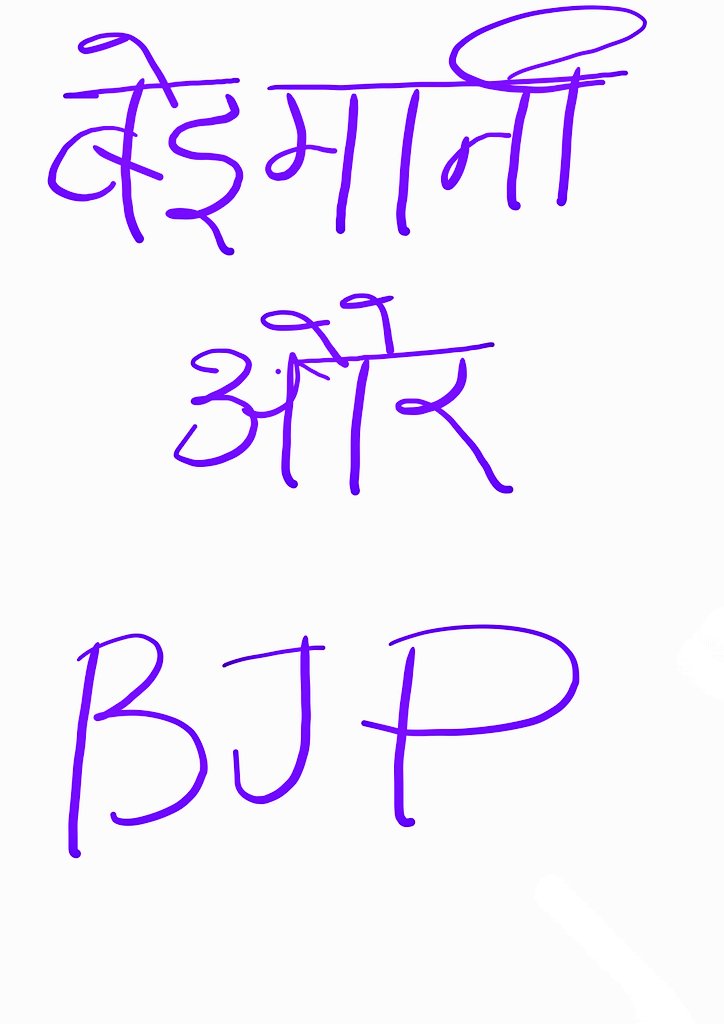 बेइमानी
और
BJP